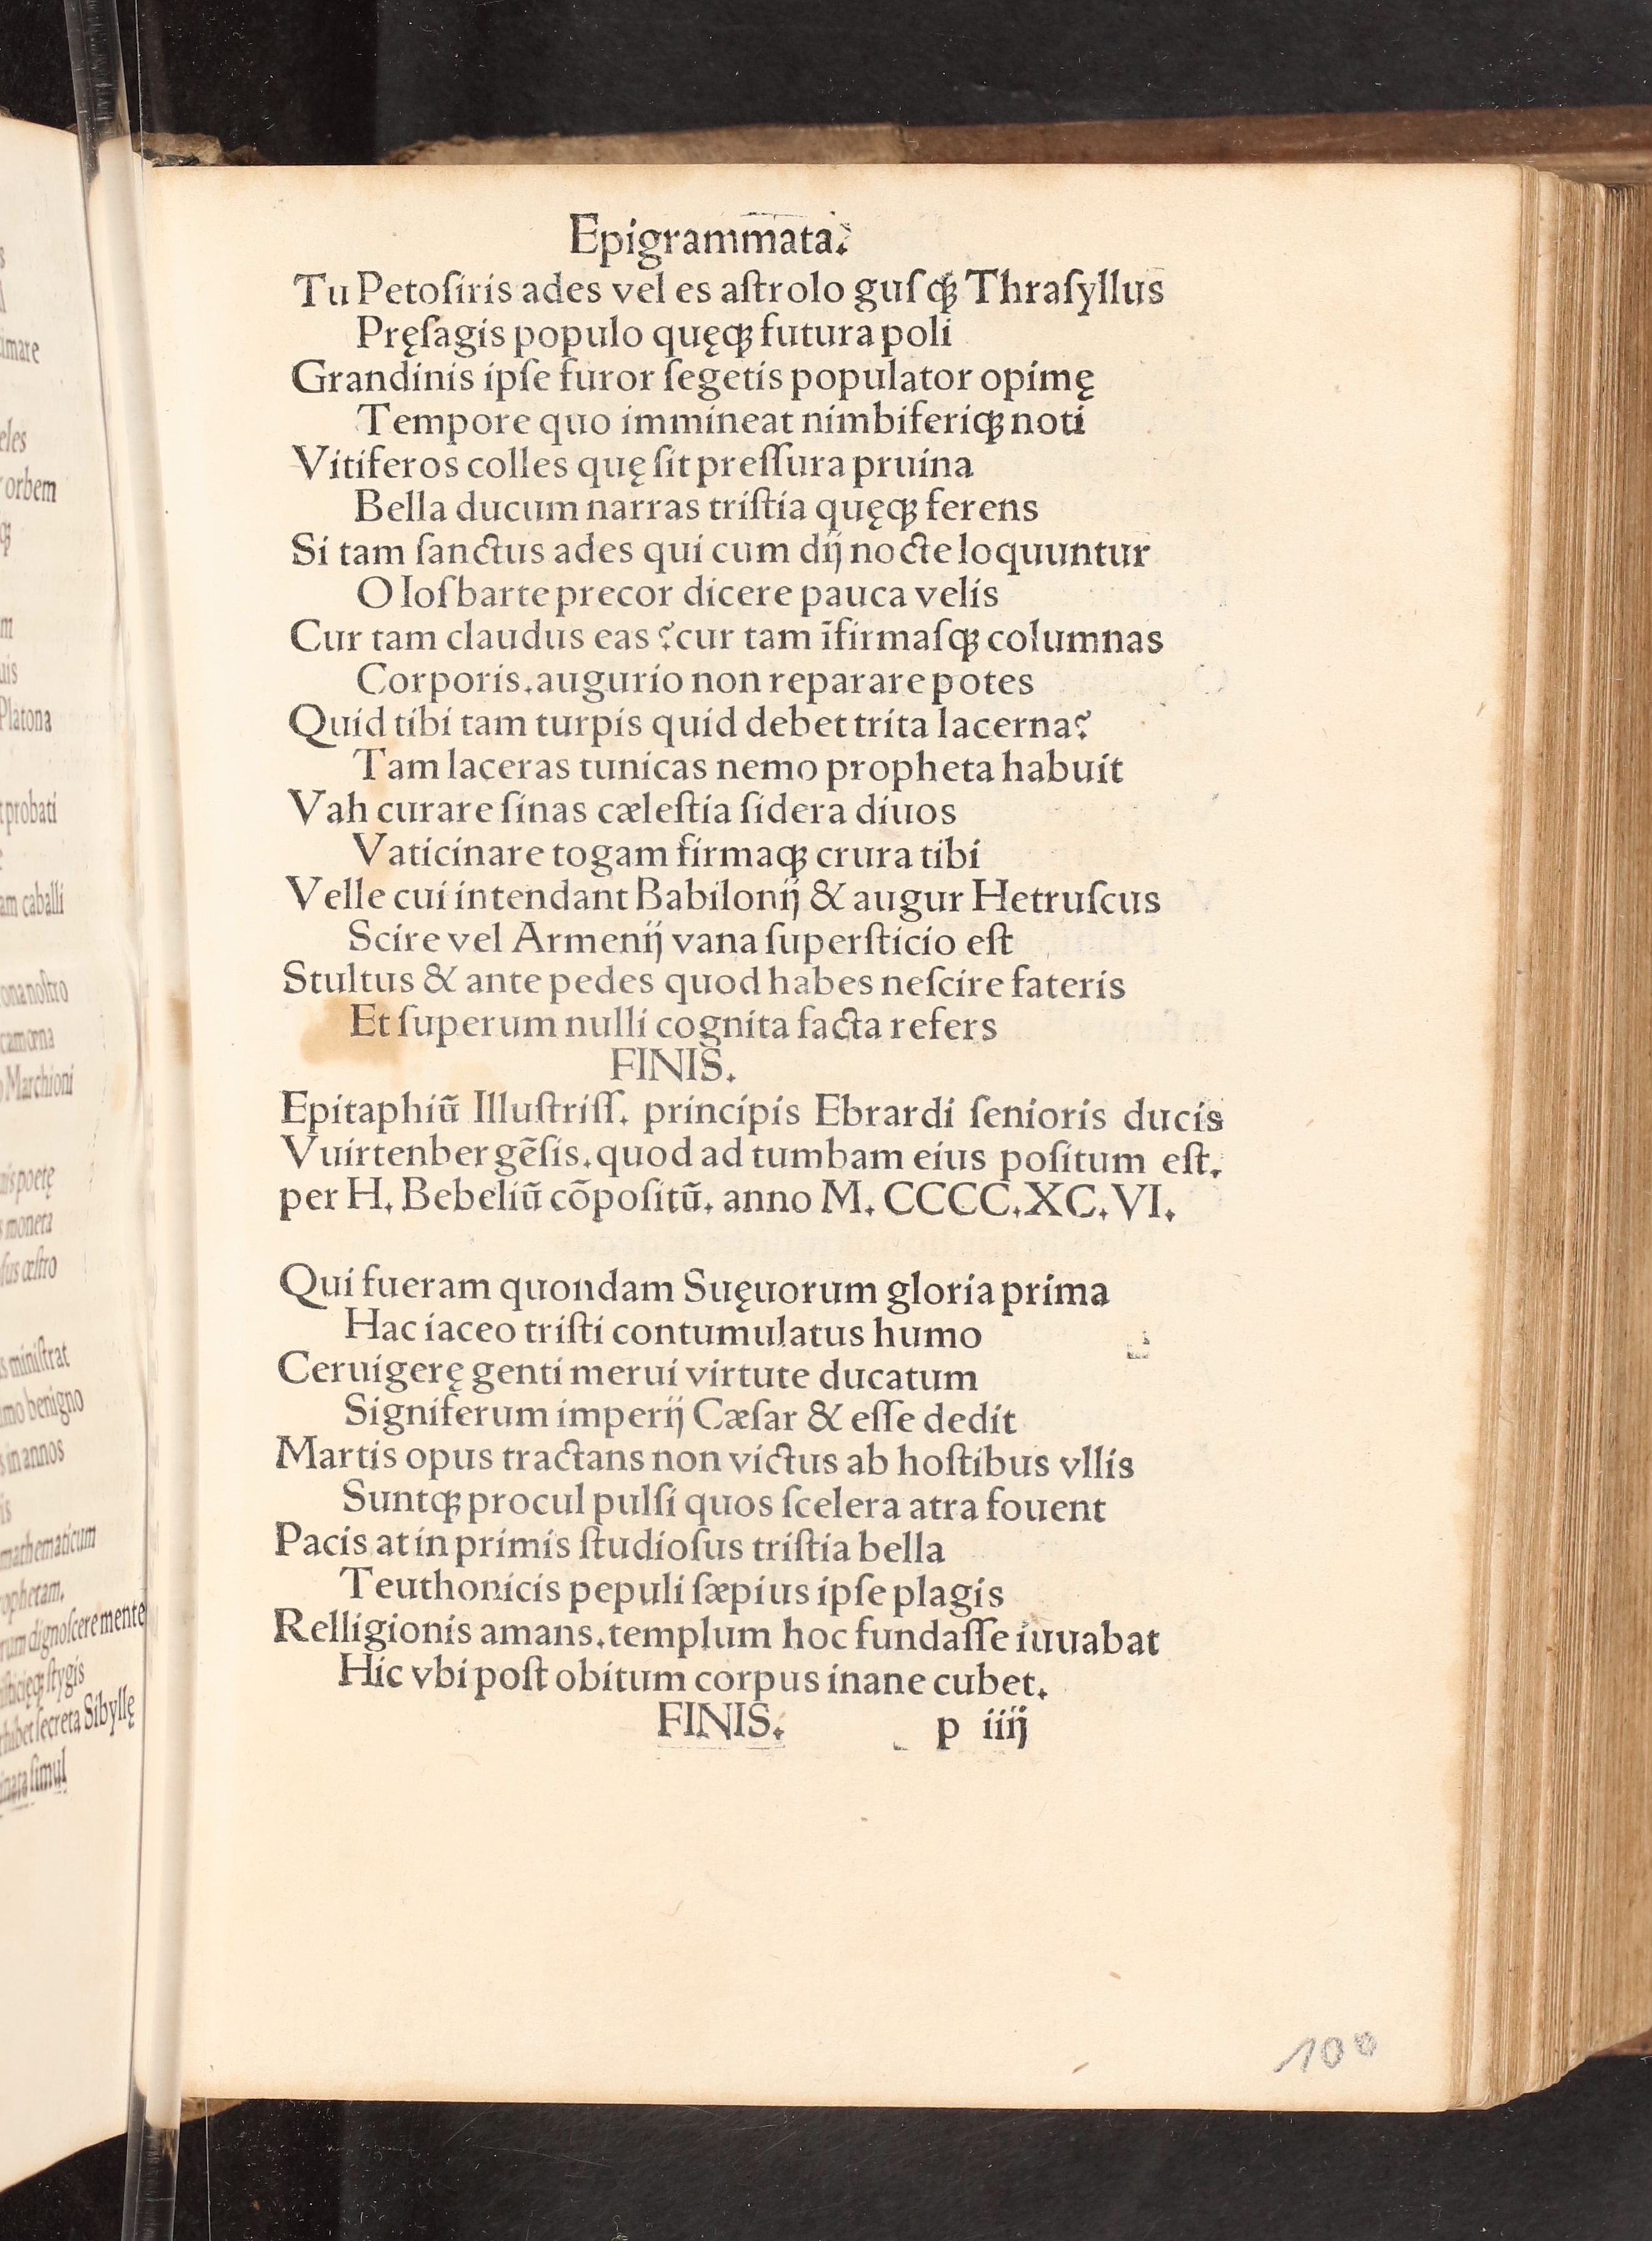 Epigrammata.
Tu Petoſiris ades vel es aſtrolo guſqꝫ Thraſyllus
Pręſagis populo quęqꝫ futura poli
Grandinis ipſe furor ſegetis populator opimę
Tempore quo immineat nimbiferiqꝫ noti
Vitiferos colles quę ſit preſſura pruina
Bella ducum narras triſtia quęqꝫ ferens
Si tam ſanctus ades qui cum dij nocte loquuntur
O Ioſbarte precor dicere pauca velis
Cur tam claudus eas ? cur tam īfirmaſqꝫ columnas
Corporis. augurio non reparare potes
Quid tibi tam turpis quid debet trita lacerna?
Tam laceras tunicas nemo propheta habuit
Vah curare ſinas cæleſtia ſidera diuos
Vaticinare togam firmaqꝫ crura tibi
Velle cui intendant Babilonij & augur Hetruſcus
Scire vel Armenij vana ſuperſticio eſt
Stultus & ante pedes quod habes neſcire fateris
Et ſuperum nulli cognita facta refers
FINIS.
Epitaphiū Illuſtriſſ. principis Ebrardi ſenioris ducis
Vuirtenbergēſis. quod ad tumbam eius poſitum eſt.
per H. Bebeliū cōpoſitū. anno M. CCCC. XC. VI.
Qui fueram quondam Suęuorum gloria prima
Hac iaceo triſti contumulatus humo
Ceruigerę genti merui virtute ducatum
Signiferum imperij Cæſar & eſſe dedit
Martis opus tractans non victus ab hoſtibus vllis
Suntqꝫ procul pulſi quos ſcelera atra fouent
Pacis at in primis ſtudioſus triſtia bella
Teuthonicis pepuli ſæpius ipſe plagis
Relligionis amans. templum hoc fundaſſe iuuabat
Hic vbi poſt obitum corpus inane cubet.
FINIS. p iiij
100